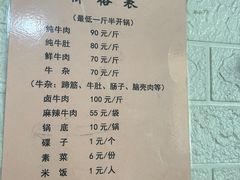 价格表
(最低一斤半开锅)
纯牛肉 90元/斤
纯牛肚 80元/斤
鲜牛肉 70元/斤
牛杂 70元/斤
(牛杂:蹄筋、牛肚、肠子、脑壳肉等)
卤牛肉 100元/斤
麻辣牛肉 55元/袋
锅底 10元/锅
碟子 1元/个
素菜 6元/份
米饭 1元/人